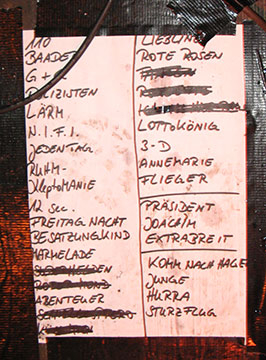 110
BAADER
G +
POLIZISTEN
LÄRM
N.I.F.I.
JEDEN TAG
RUHM-
KLEPTOMANIE
12 SEC.
FREITAG NACHT
BESATZUNGKIND
MARMELADE
ABENTEUER
LIEBLING
ROTE ROSEN
LOTTOKÖNIG
3-D
ANNEMARIE
FLIEGER
PRÄSIDENT
JOACHIM
EXTRABREIT
KOMM NACH HAGEN
JUNGE
HURRA
STURZFLUG